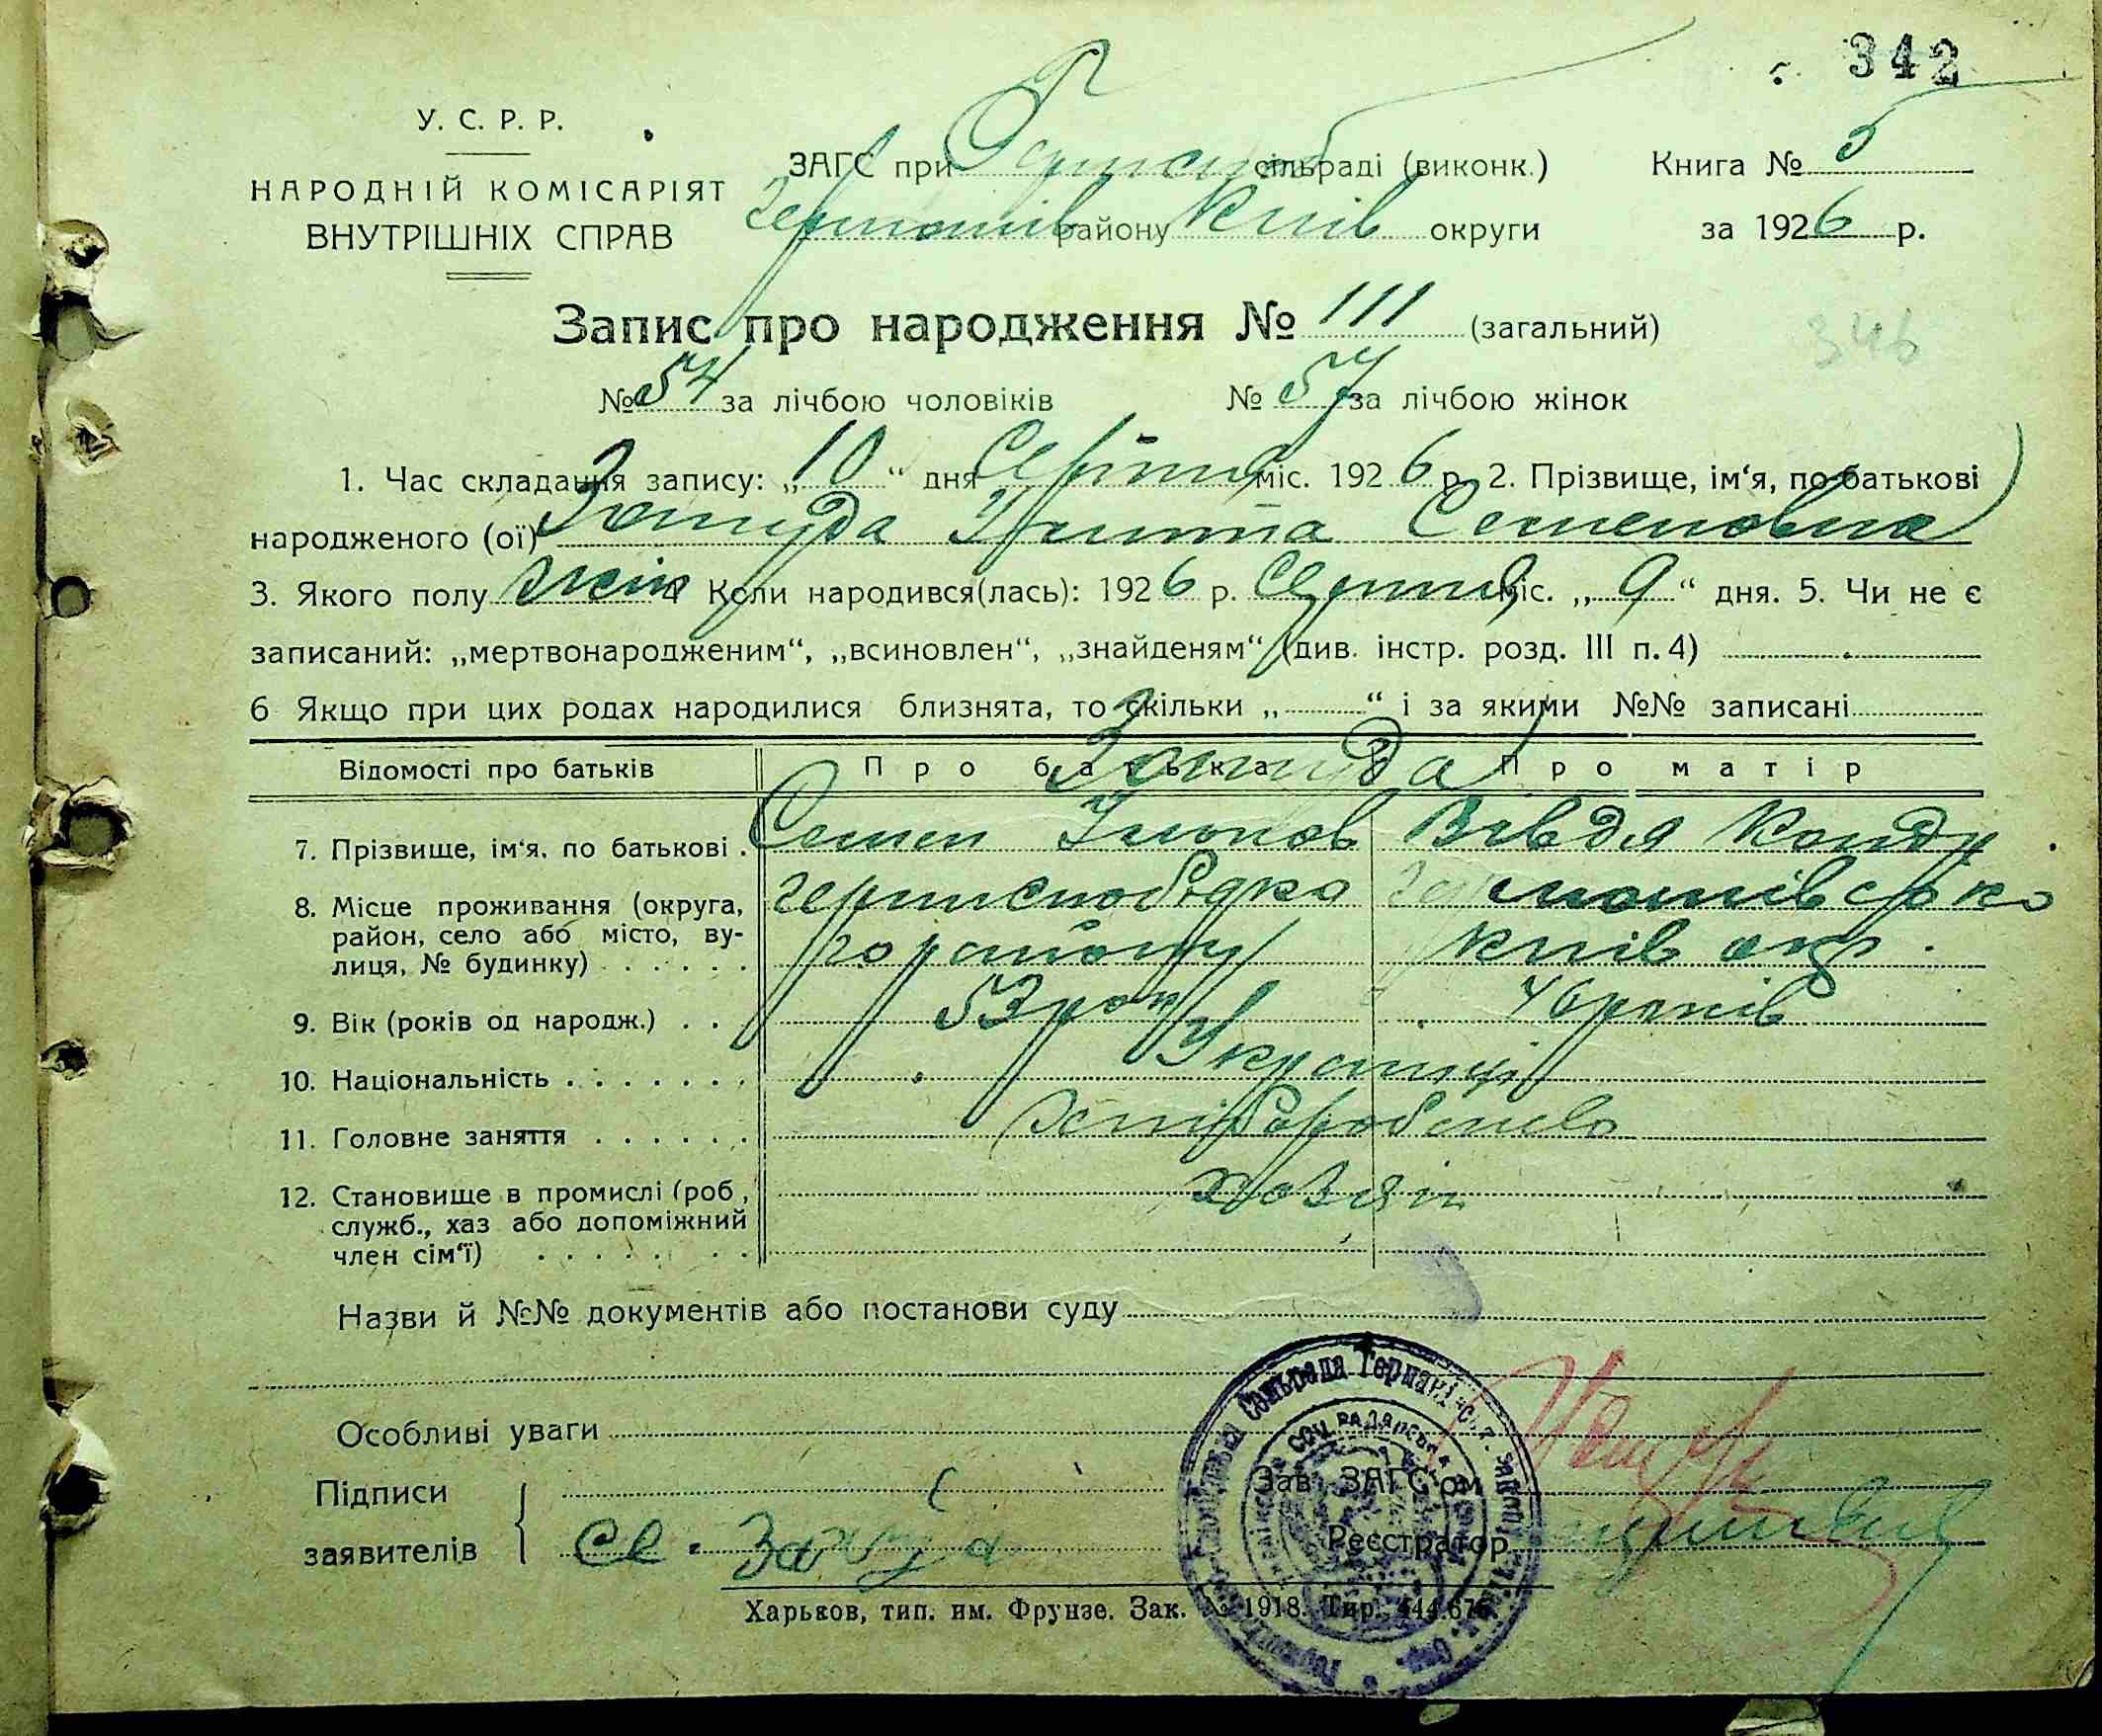 342
У. С. Р. Р.
НАРОДНІЙ КОМІСАРІЯТ
ВНУТРІШНІХ СПРАВ
ЗАГС при сільраді (виконк.)
району Київ округи
Книга № 5
за 1926 р.
Запис про народження № 111 (загальний)
346
№ 54 за лічбою чоловіків № 57 за лічбою жінок
1. Час складання запису: „10“ дня Серпня міс. 1926 р. 2. Прізвище, ім‘я, по батькові
народженого (ої) Семеновна
3. Якого полу жін 4 Коли народився(лась): 1926 р. Серпня міс. „9“ дня. 5. Чи не є
записаний: „мертвонародженим“, „всиновлен“, „знайденям“ (див. інстр. розд. III п. 4)
6 Якщо при цих родах народилися близнята, то скільки „ “ і за якими №№ записані
Відомості про батьків Про батька Про матір
7. Прізвище, ім‘я, по батькові . Семен Вівдя
8. Місце проживання (округа,
район, село або місто, ву-
лиця, № будинку) району Київ окр.
9. Вік (років од народж.) . . 53 рок 46 років
10. Національність . . . . . . . Українці
11. Головне заняття . . . . . . Хліборобство
12. Становище в промислі (роб,
служб., хаз або допоміжний
член сім‘ї) хозяїн
Назви й №№ документів або постанови суду
Особливі уваги
Підписи
заявителів
Зав. ЗАГС‘ом
Реєстратор
Харьков, тип. им. Фрунзе. Зак. № 1918. Тир.